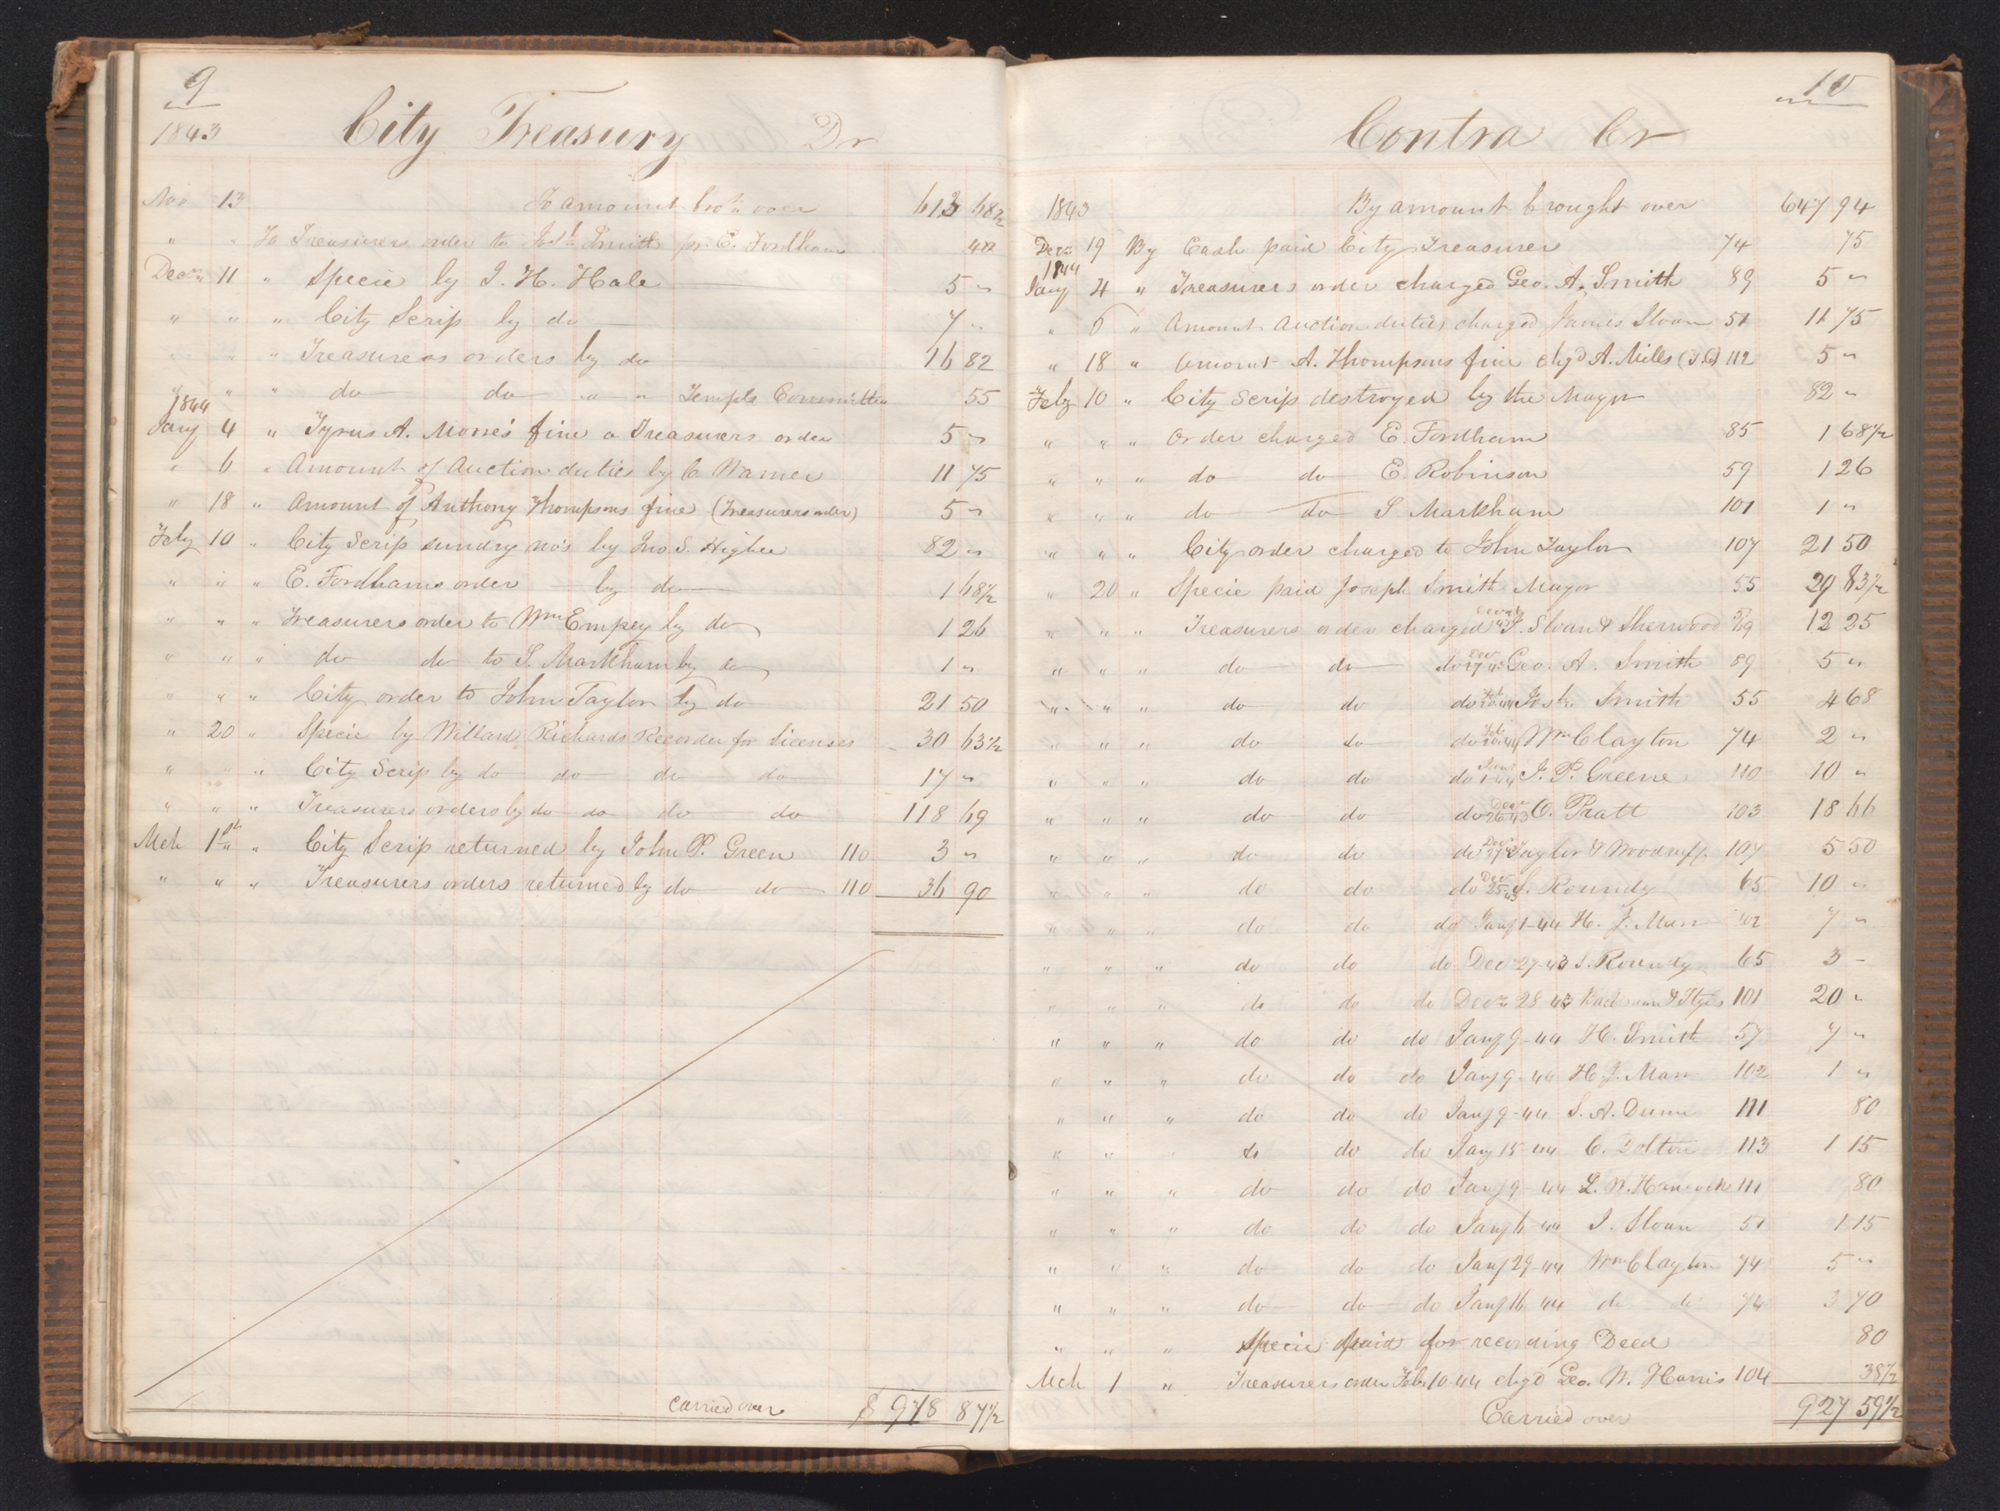 9
1843 City Treasury Dr
Nov 13 To amount bro't over 613 68 1/2
" " To Treasurers order to Jos. Smith pr. E. Fordham 40
Decr 11 " Specie by J. H. Hale 5 "
" " " City Scrip by do 7 "
" " " Treasurers orders by do 16 82
" " " do do " " Temple Committee 55
1844
Jany 4 " Tyrus A. Morse's fine a Treasurers order 5 "
" 6 " Amount of Auction duties by C Warner 11 75
" 18 " Amount of Anthony Thompsons fine (Treasurers order) 5 "
Feby 10 " City Scrip sundry no's by Jno. S. Higbee 82 "
" " " E. Fordhams order by do 1 68 1/2
" " " Treasurers order to Wm Empey by do 1 26
" " " do do to S. Markham by do 1 "
" " " City order to John Taylor by do 21 50
" 20 " Specie by Willard Richards Recorder for Licenses 30 63 1/2
" " " City Scrip by do do do do 17 "
" " " Treasurers orders by do do do do 118 69
Mch 1st " City Scrip returned by John P. Green 110 3 "
" " " Treasurers orders returned by do do 110 36 90
carried over $ 978 87 1/2
10
Contra Cr
1843 By amount brought over 647 94
Decr 19 By Cash paid City Treasurer 74 75
1844
Jany 4 " Treasurers order charged Geo. A. Smith 89 5 "
" 6 " Amount Auction duties charged James Sloan 51 11 75
" 18 " Amount A. Thompsons fine chgd A. Miles 112 5 "
Feby 10 " City Scrip destroyed by the Mayor 82 "
" " " Order charged E. Fordham 85 1 68 1/2
" " " do do E. Robinson 59 1 26
" " " do do S Markham 101 1 "
" " " City order charged to John Taylor 107 21 50
" 20 " Specie paid Joseph Smith Mayor 55 29 83 1/2
" " " Treasurers order charged J. Sloan & Sherwood 12 25
" " " do do do Geo. A. Smith 89 5 "
" " " do do do Josh. Smith 55 4 68
" " " do do do Wm Clayton 74 2 "
" " " do do do J. P. Greene 110 10 "
" " " do do do O. Pratt 103 18 66
" " " do do do Taylor & Woodruff 107 5 50
" " " do do do S. Roundy 65 10 "
" " " do do do Jany 1-44 H. J. Marr 102 7 "
" " " do do do Dec 27-43 S. Roundy 65 3 -
" " " do do do Decr 28-43 101 20 "
" " " do do do Jany 9-44 H. Smith 57 7 "
" " " do do do Jany 9-44 H. J. Marr 102 1 "
" " " do do do Jany 9-44 S. A. Dunn 111 80
" " " do do do Jany 15-44 C. Dolton 113 1 15
" " " do do do Jany 9-44 L. N. Hancock 111 80
" " " do do do Jany 6 44 J. Sloan 51 1 15
" " " do do do Jany 29-44 Wm Clayton 74 5 "
" " " do do do Jany 16 44 do do 74 3 70
" " " Specie paid for recording Deed 80
Mch 1 " Treasurers order Feb. 10 44 chgd Geo. W. Harris 104 38 1/2
Carried over 927 59 1/2